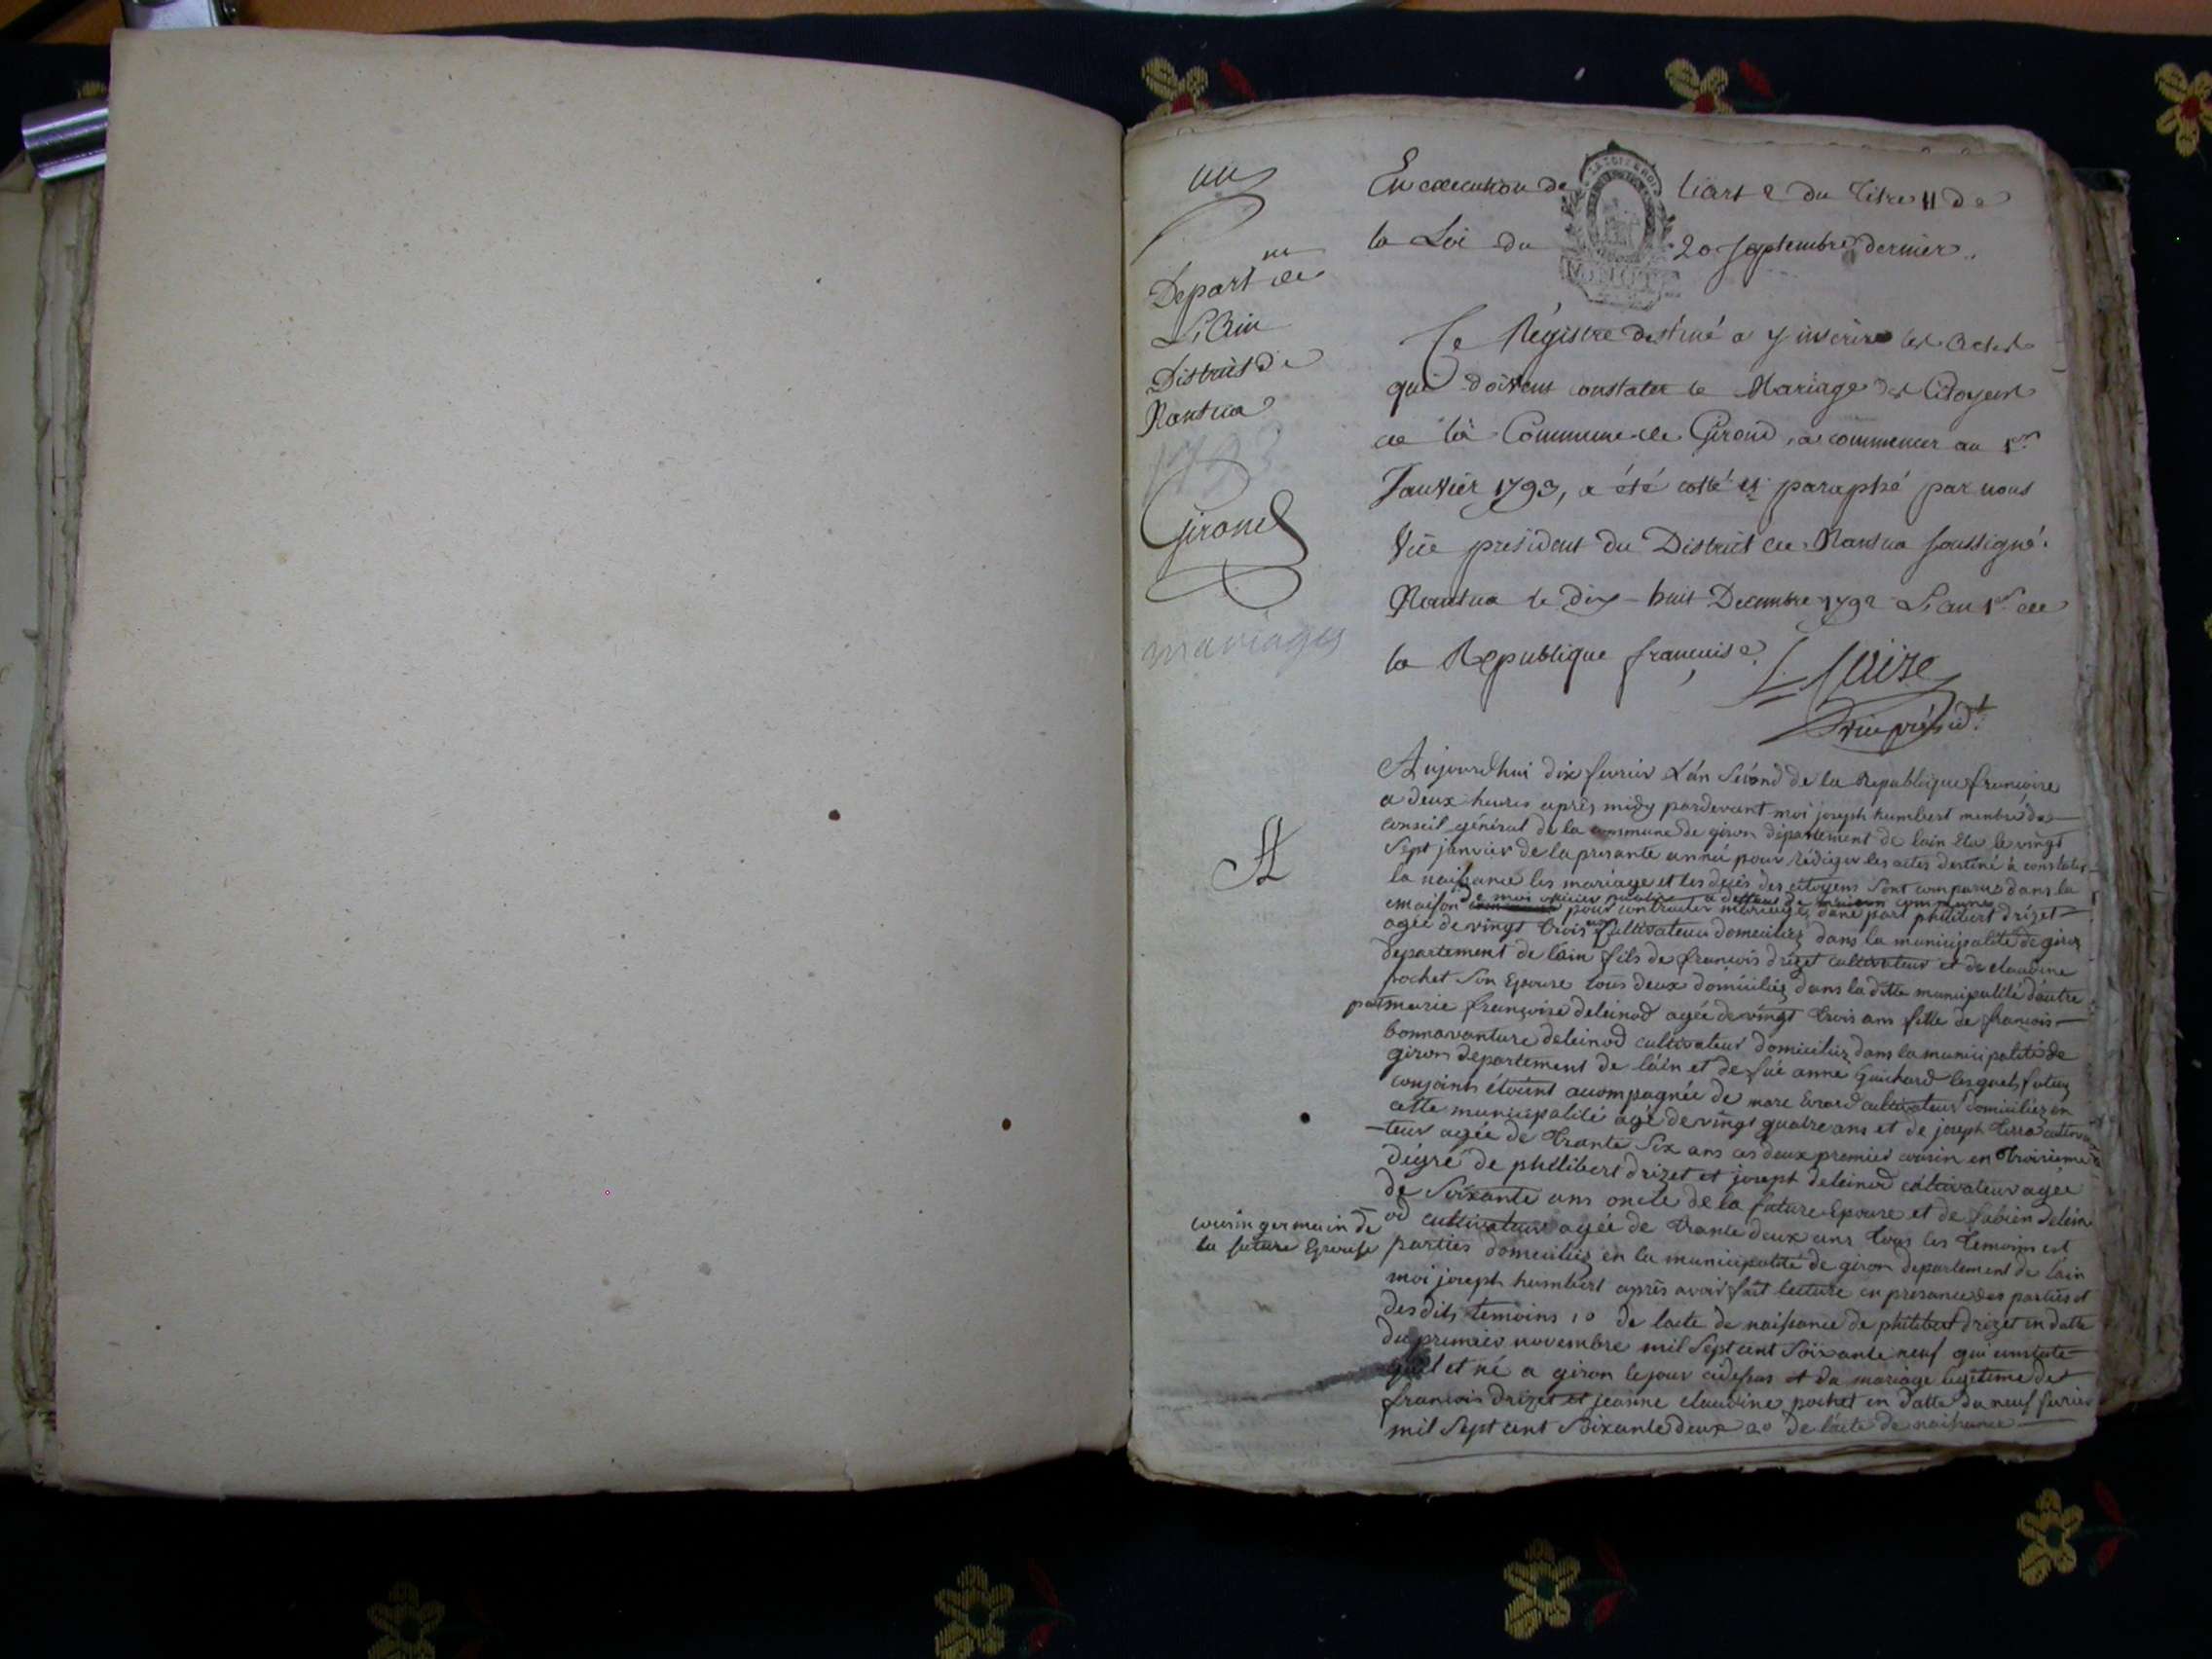 un
Depart nt de
L'Ain
District de
Nantua
1793
Girond
mariages
En execution de l'art 2 du Titre II de
la Loi du 20 septembre dernier.
LA LOI ET LE ROI
Ce Régistre destiné a y inscrire les actes
qui doivent constater le Mariage des Citoyens
de la Commune de Girond, a commencer au 1er
Janvier 1793, a été cotté et paraphé par nous
Vice president du District de Nantua soussigné.
Nantua le dix-huit Decembre 1792 L'an 1er de
la Republique francaise.
vice présidt.
Aujourdhui dix fevrier L'an Second de la Republique francoise
a deux heures après midy pardevant moi joseph humbert menbre du
conseil général de la commune de giron département de lain Elu le vingt
Sept janvier de la presante année pour rédiger les actes destiné à constater
la naissance les mariage et les décès des citoyens Sont comparus dans la
maison de moi officier public a deffaut de maison commune
pour contracter mariage dune part philibert drizet
agée de vingt trois ans cultivateur domicilliez dans la municipalité de giron
departement de lain fils de francois drizet cultivateur et de claudine
pochet Son Epouse tous deux domiciliez dans la ditte municipalité d'autre
part marie françoise deleinod agée de vingt trois ans fille de francois
bonnavanture deleinod cultivateur domiciliez dans la municipalité de
giron departement de lain et de fue anne Guichard lesquels futurs
conjoints étoient acompagnée de marc Evrard cultivateur domiciliez en
cette municipalité agé de vingt quatre ans et de joseph terra cultiva
teur agée de trante Six ans ces deux premier cousin en troisieme
degré de philibert drizet et joseph deleinod cultivateur agée
de Soixante ans oncle de la future Epouse et de fabien delein
od cultivateur agée de trante deux ans tous les temoins est
cousin germain de
la future Epouse
parties domiciliez en la municipalité de giron departement de lain
moi joseph humbert après avoir fait lecture en presance des parties et
desdits temoins 1o de lacte de naissance de philibert drizet en datte
du premier novembre mil Sept cent Soixante neuf qui constate
quil et né a giron le jour cidessus et du mariage legitime de
francois drizet et jeanne claudine pochet en datte du neuf fevrier
mil Sept cent Soixante deux 2o de lacte de naissance